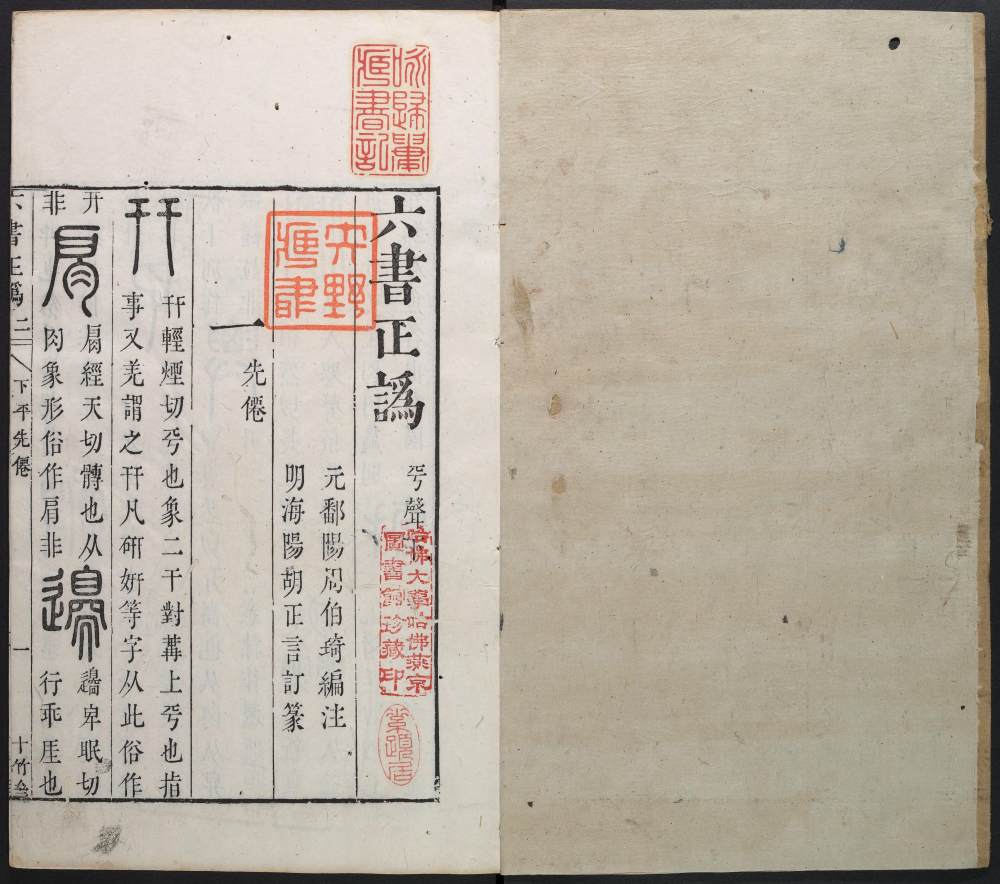 六書正譌
平聲下
元鄱陽周伯琦編注
明海陽胡正言訂篆
一先僊
幵
幵輕煙切平也象二干對冓上平也指
事又羌謂之幵凡研妍等字从此俗作
开
非
肩
肩經天切髆也从
肉象形俗作肩非
邊
邊卑眠切
行垂厓也
六書正譌二
下平先僊
一
十竹齋
哈佛大學哈佛燕京
圖書館珍藏印